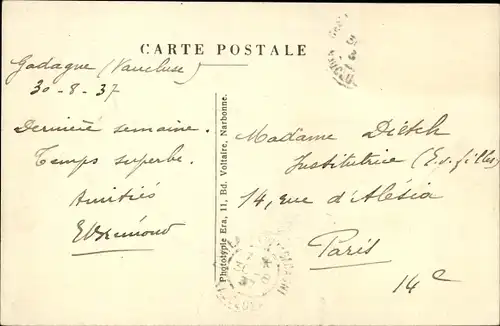 CARTE POSTALE
Gadagne (Vaucluse)
30-8-37
Dernière semaine.
Temps superbe.
Amitiés
Phototypie Era, 11, Bd. Voltaire, Narbonne.
Madame Diétsch
Institutrice (E. v. filles)
14, rue d'Alésia
Paris
14e